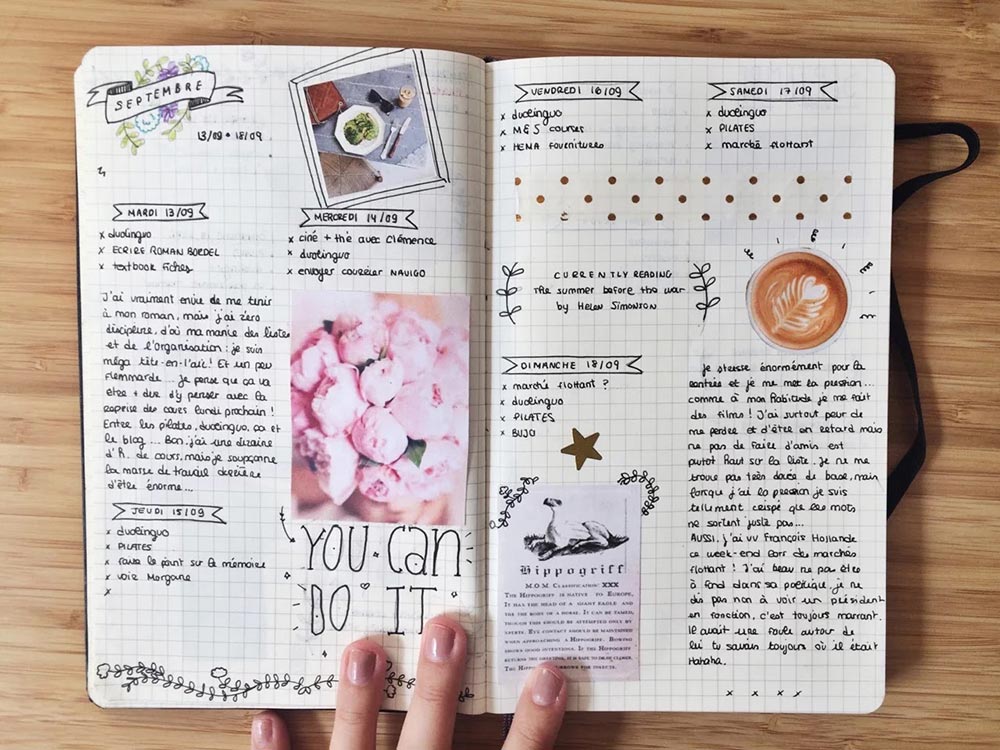 SEPTEMBRE
13/09 • 18/09
MARDI 13/09
x duolinguo
x ECRIRE ROMAN BORDEL
x textbook fiches
J'ai vraiment envie de me tenir
à mon roman, mais j'ai zéro
discipline, d'où ma manie des listes
et de l'organisation : je suis
méga tête-en-l'air! Et un peu
flemmarde... je pense que ça va
être + dur d'y penser avec la
reprise des cours lundi prochain!
Entre les pilates, duolinguo, ça et
le blog... Bon, j'ai une dizaine
d'h. de cours, mais je soupçonne
la masse de travail derrière
d'être énorme...
JEUDI 15/09
x duolinguo
x PILATES
x faire le point sur le mémoire
x voir Morgane
x
MERCREDI 14/09
x ciné + thé avec Clémence
x duolinguo
x envoyer courrier NAVIGO
YOU CAN
DO IT
VENDREDI 16/09
x duolinguo
x M&S courses
x HEMA fournitures
SAMEDI 17/09
x duolinguo
x PILATES
x marché flottant
CURRENTLY READING
The summer before the war
by Helen Simonson
DIMANCHE 18/09
x marché flottant ?
x duolinguo
x PILATES
x BUJO
Hippogriff
M.O.M. Classification: XXX
The Hippogriff is native to Europe,
It has the head of a giant eagle and
the body of a horse. It can be tamed,
though this should be attempted only by
experts. Eye contact should be maintained
when approaching a Hippogriff. Bowing
shows good intentions. If the Hippogriff
returns the greeting, it is safe to draw closer.
The Hippogriff burrows for insects.
je stresse énormément pour la
rentrée et je me met la pression...
comme à mon habitude je me fait
des films! J'ai surtout peur de
me perdre et d'être en retard mais
ne pas de faire d'amis est
plutot haut sur la liste. je ne me
trouve pas très douée de base, mais
lorsque j'ai la pression je suis
tellement crispé que les mots
ne sortent juste pas...
AUSSI, j'ai vu François Hollande
ce week-end lors des marchés
flottant! J'ai beau ne pas être
à fond dans sa politique, je ne
dis pas non à voir un président
en fonction, c'est toujours marrant.
Il avait une foule autour de
lui tu savais toujours où il était
Hahaha.
x x x x